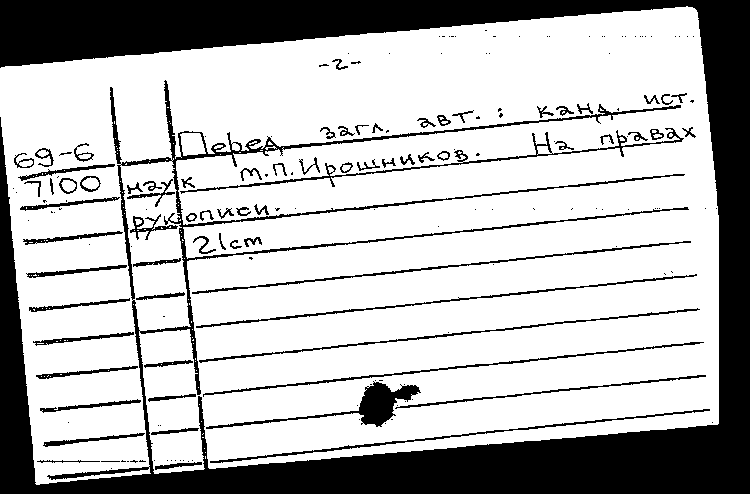 -2-
69-6 Перед загл. авт. : канд. ист.
7100 наук М.П.Ирошников. На правах
рукописи.
21cm